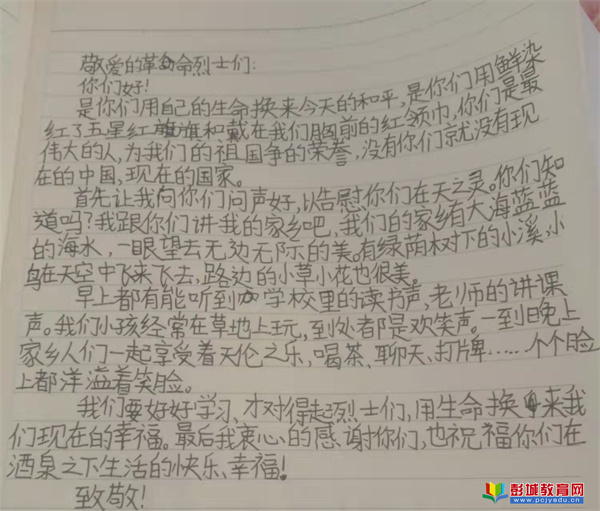 敬爱的革命烈士们:
你们好!
是你们用自己的生命换来今天的和平,是你们用鲜染
红了五星红旗和戴在我们胸前的红领巾,你们是最
伟大的人,为我们的祖国争的荣誉,没有你们就没有现
在的中国,现在的国家。
首先让我向你们问声好,以告慰你们在天之灵。你们知
道吗?我跟你们讲我的家乡吧,我们的家乡有大海蓝蓝
的海水,一眼望去无边无际的美。有绿荫树下的小溪;小
鸟在天空中飞来飞去,路边的小草小花也很美。
早上都有能听到学校里的读书声,老师的讲课
声。我们小孩经常在草地上玩,到处都是欢笑声。一到晚上
家乡人们一起享受着天伦之乐,喝茶、聊天、打牌……个个脸
上都洋溢着笑脸。
我们要好好学习、才对得起烈士们,用生命换来我
们现在的幸福。最后我衷心的感谢你们,也祝福你们在
酒泉之下生活的快乐、幸福!
致敬!
彭城教育网
www.pcjyedu.com